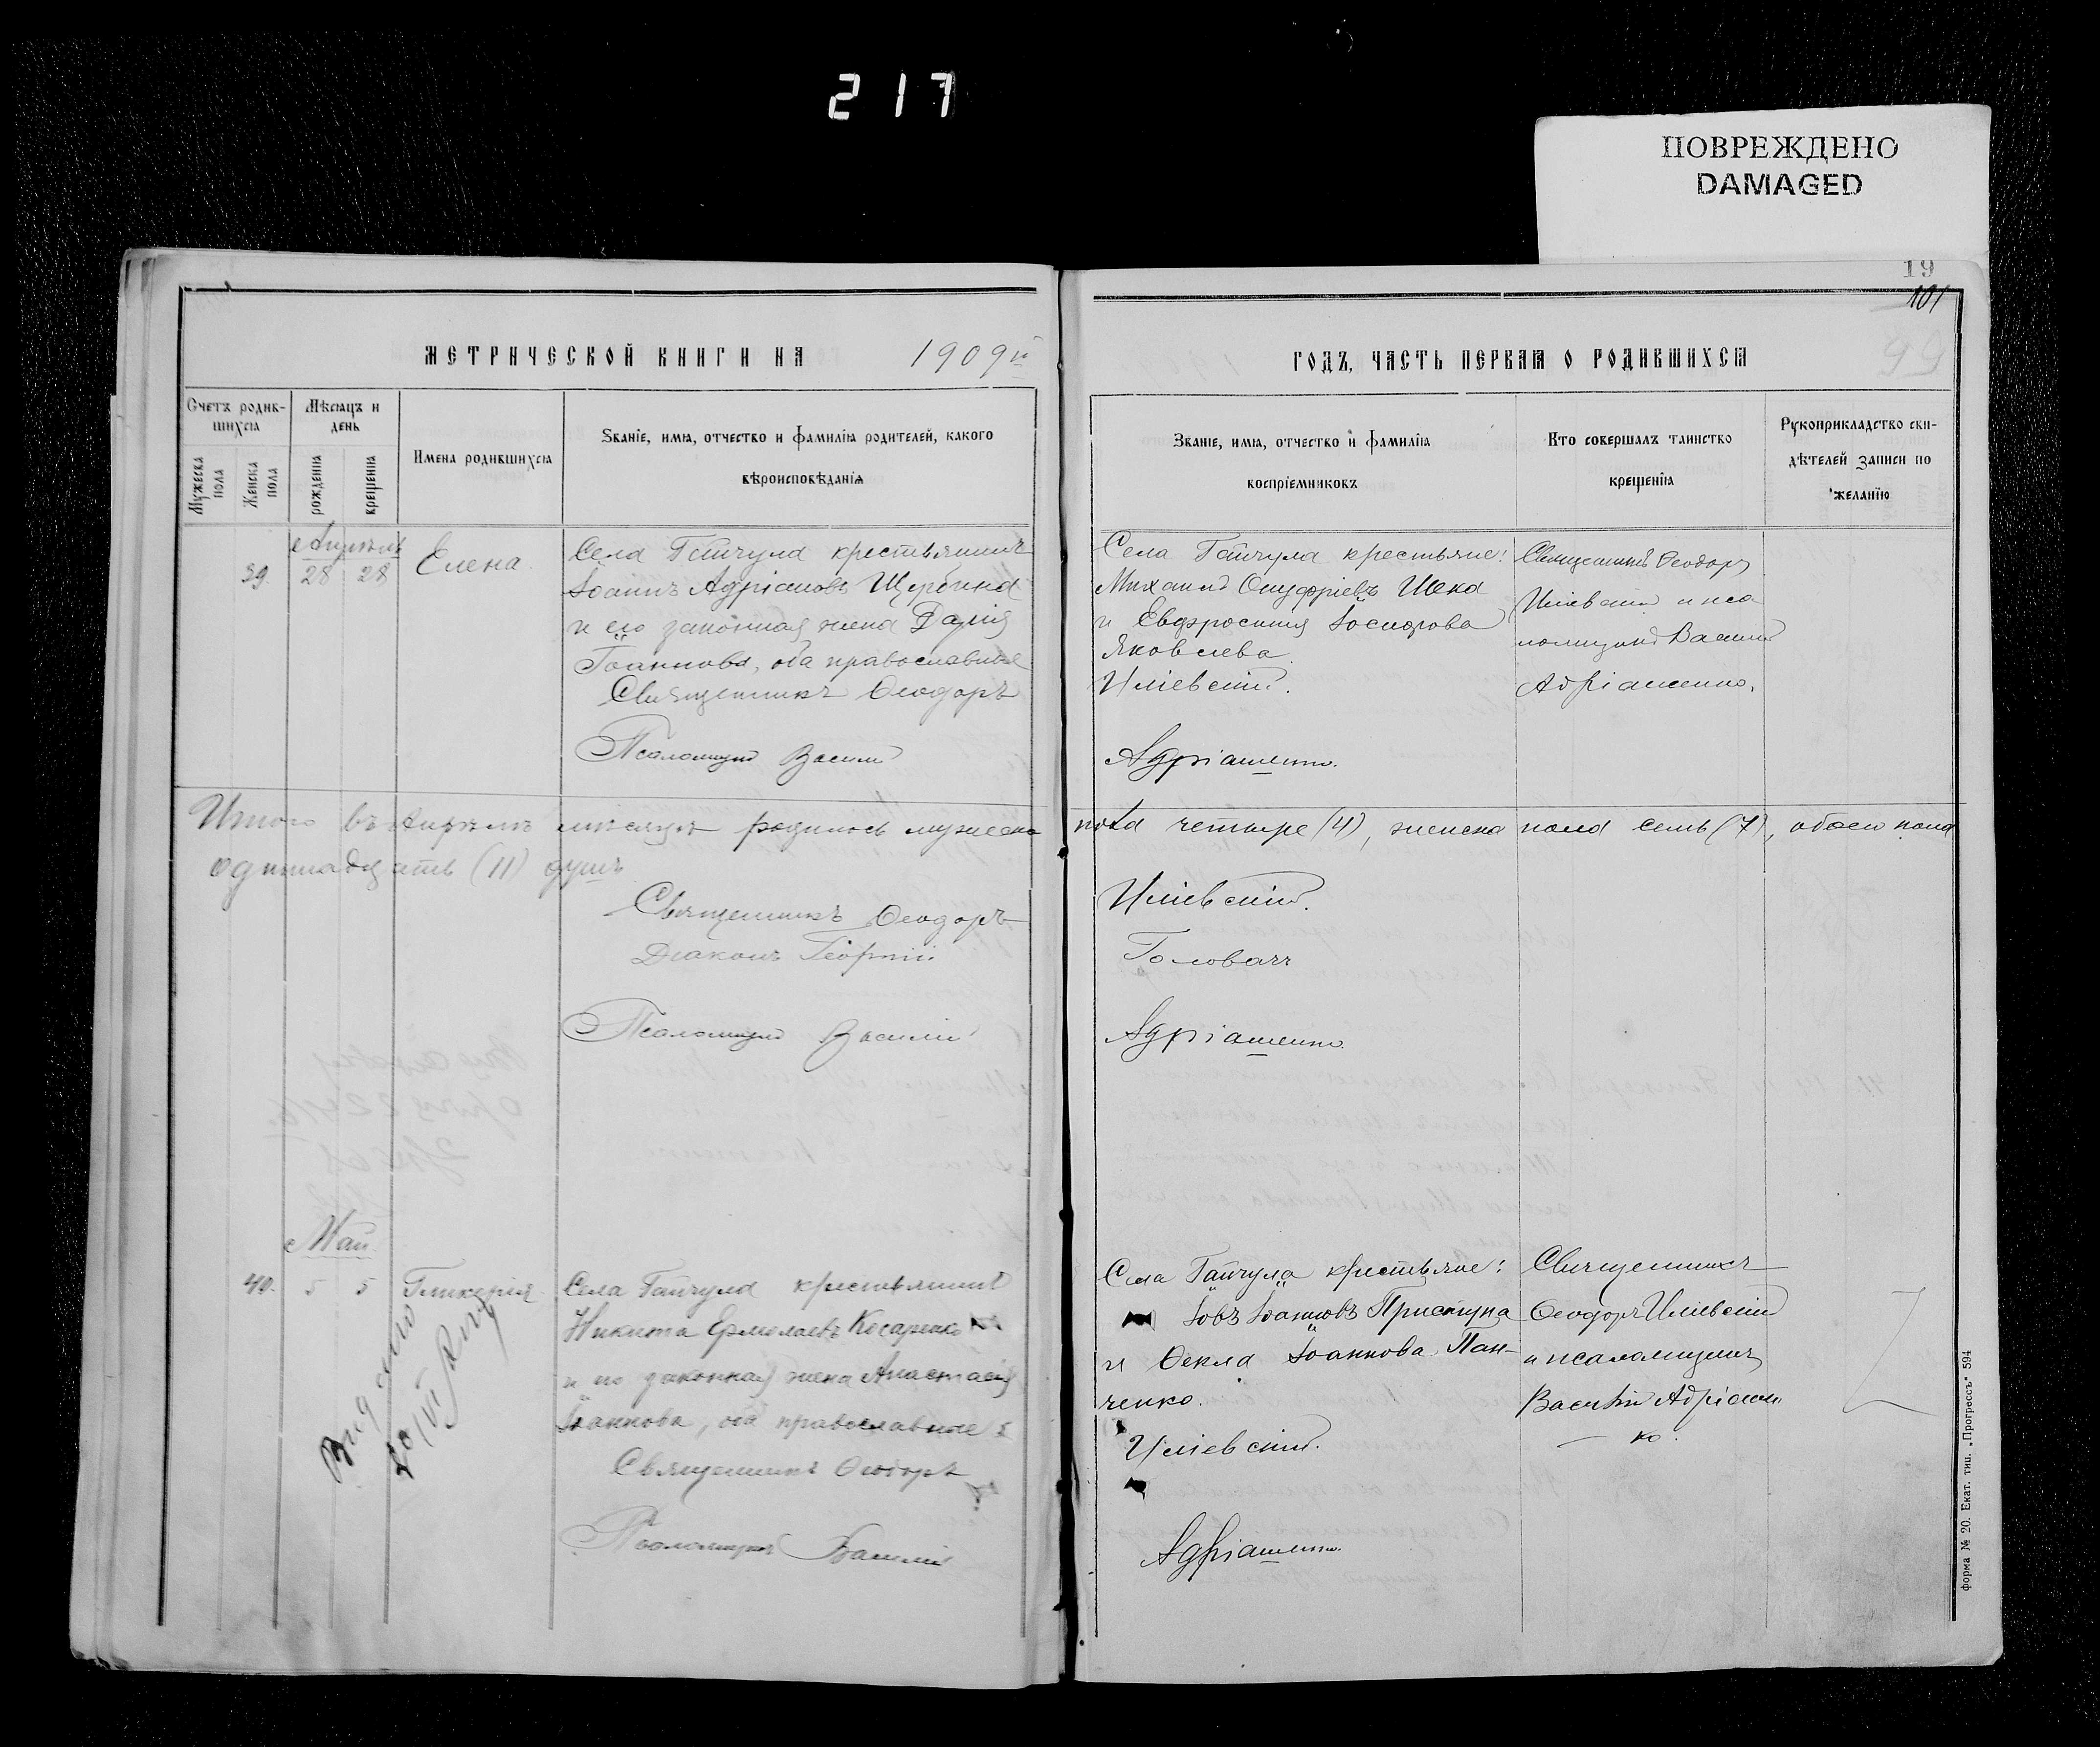 217
ПОВРЕЖДЕНО
DAMAGED
19
101
МЕТРИЧЕСКОЙ КНИГИ НА 1909й
ГОДЪ, ЧАСТЬ ПЕРВАЯ О РОДИВШИХСЯ
Счетъ родив-
шихся
Мѣсяцъ и
день
Имена родившихся
Званіе, имя, отчество и фамилія родителей, какого
вѣроисповѣданія
Мужеска
пола
Женска
пола
рожденія
крещенія
Званіе, имя, отчество и фамилія
воспріемниковъ
Кто совершалъ таинство
крещенія
Рукоприкладство сви-
дѣтелей записи по
желанію
Апрѣль
39. 28 28 Елена
Села Гайчула крестьянинъ
Іоаннъ Адріановъ Щербина
и его законная жена Дарія
Іоаннова, оба православные
Священникъ Ѳеодоръ
Псаломщикъ Василій
Села Гайчула крестьяне:
Михаилъ Онуфріевъ Шека
и Евфросинія
Яковлева
Иліевскій.
Адріашенко.
Священникъ Ѳеодоръ
Иліевскій и пса
ломщикъ Василій
Адріашенко.
Итого въ Апрѣлѣ мѣсяцѣ родилось мужеска пола четыре (4), женска пола семь (7), обоего пола
одиннадцать (11) душъ
Священникъ Ѳеодоръ Иліевскій.
Діаконъ Георгій Головачъ
Псаломщикъ Василій Адріашенко
Май
40. 5 5 Гликерія
Села Гайчула крестьянинъ
Никита Ермолаевъ Косаренко
и его законная жена Анастасія
Іоаннова, оба православные
Священникъ Ѳеодоръ
Псаломщикъ Василій
Села Гайчула крестьяне:
Іовъ Іоанновъ Приступа
и Ѳекла Іоаннова Пан-
ченко.
Иліевскій.
Адріашенко.
Священникъ
Ѳеодоръ Иліевскій
и псаломщикъ
Василій Адріашен
ко.
форма № 20. Екат. тип. „Прогрессъ" 594